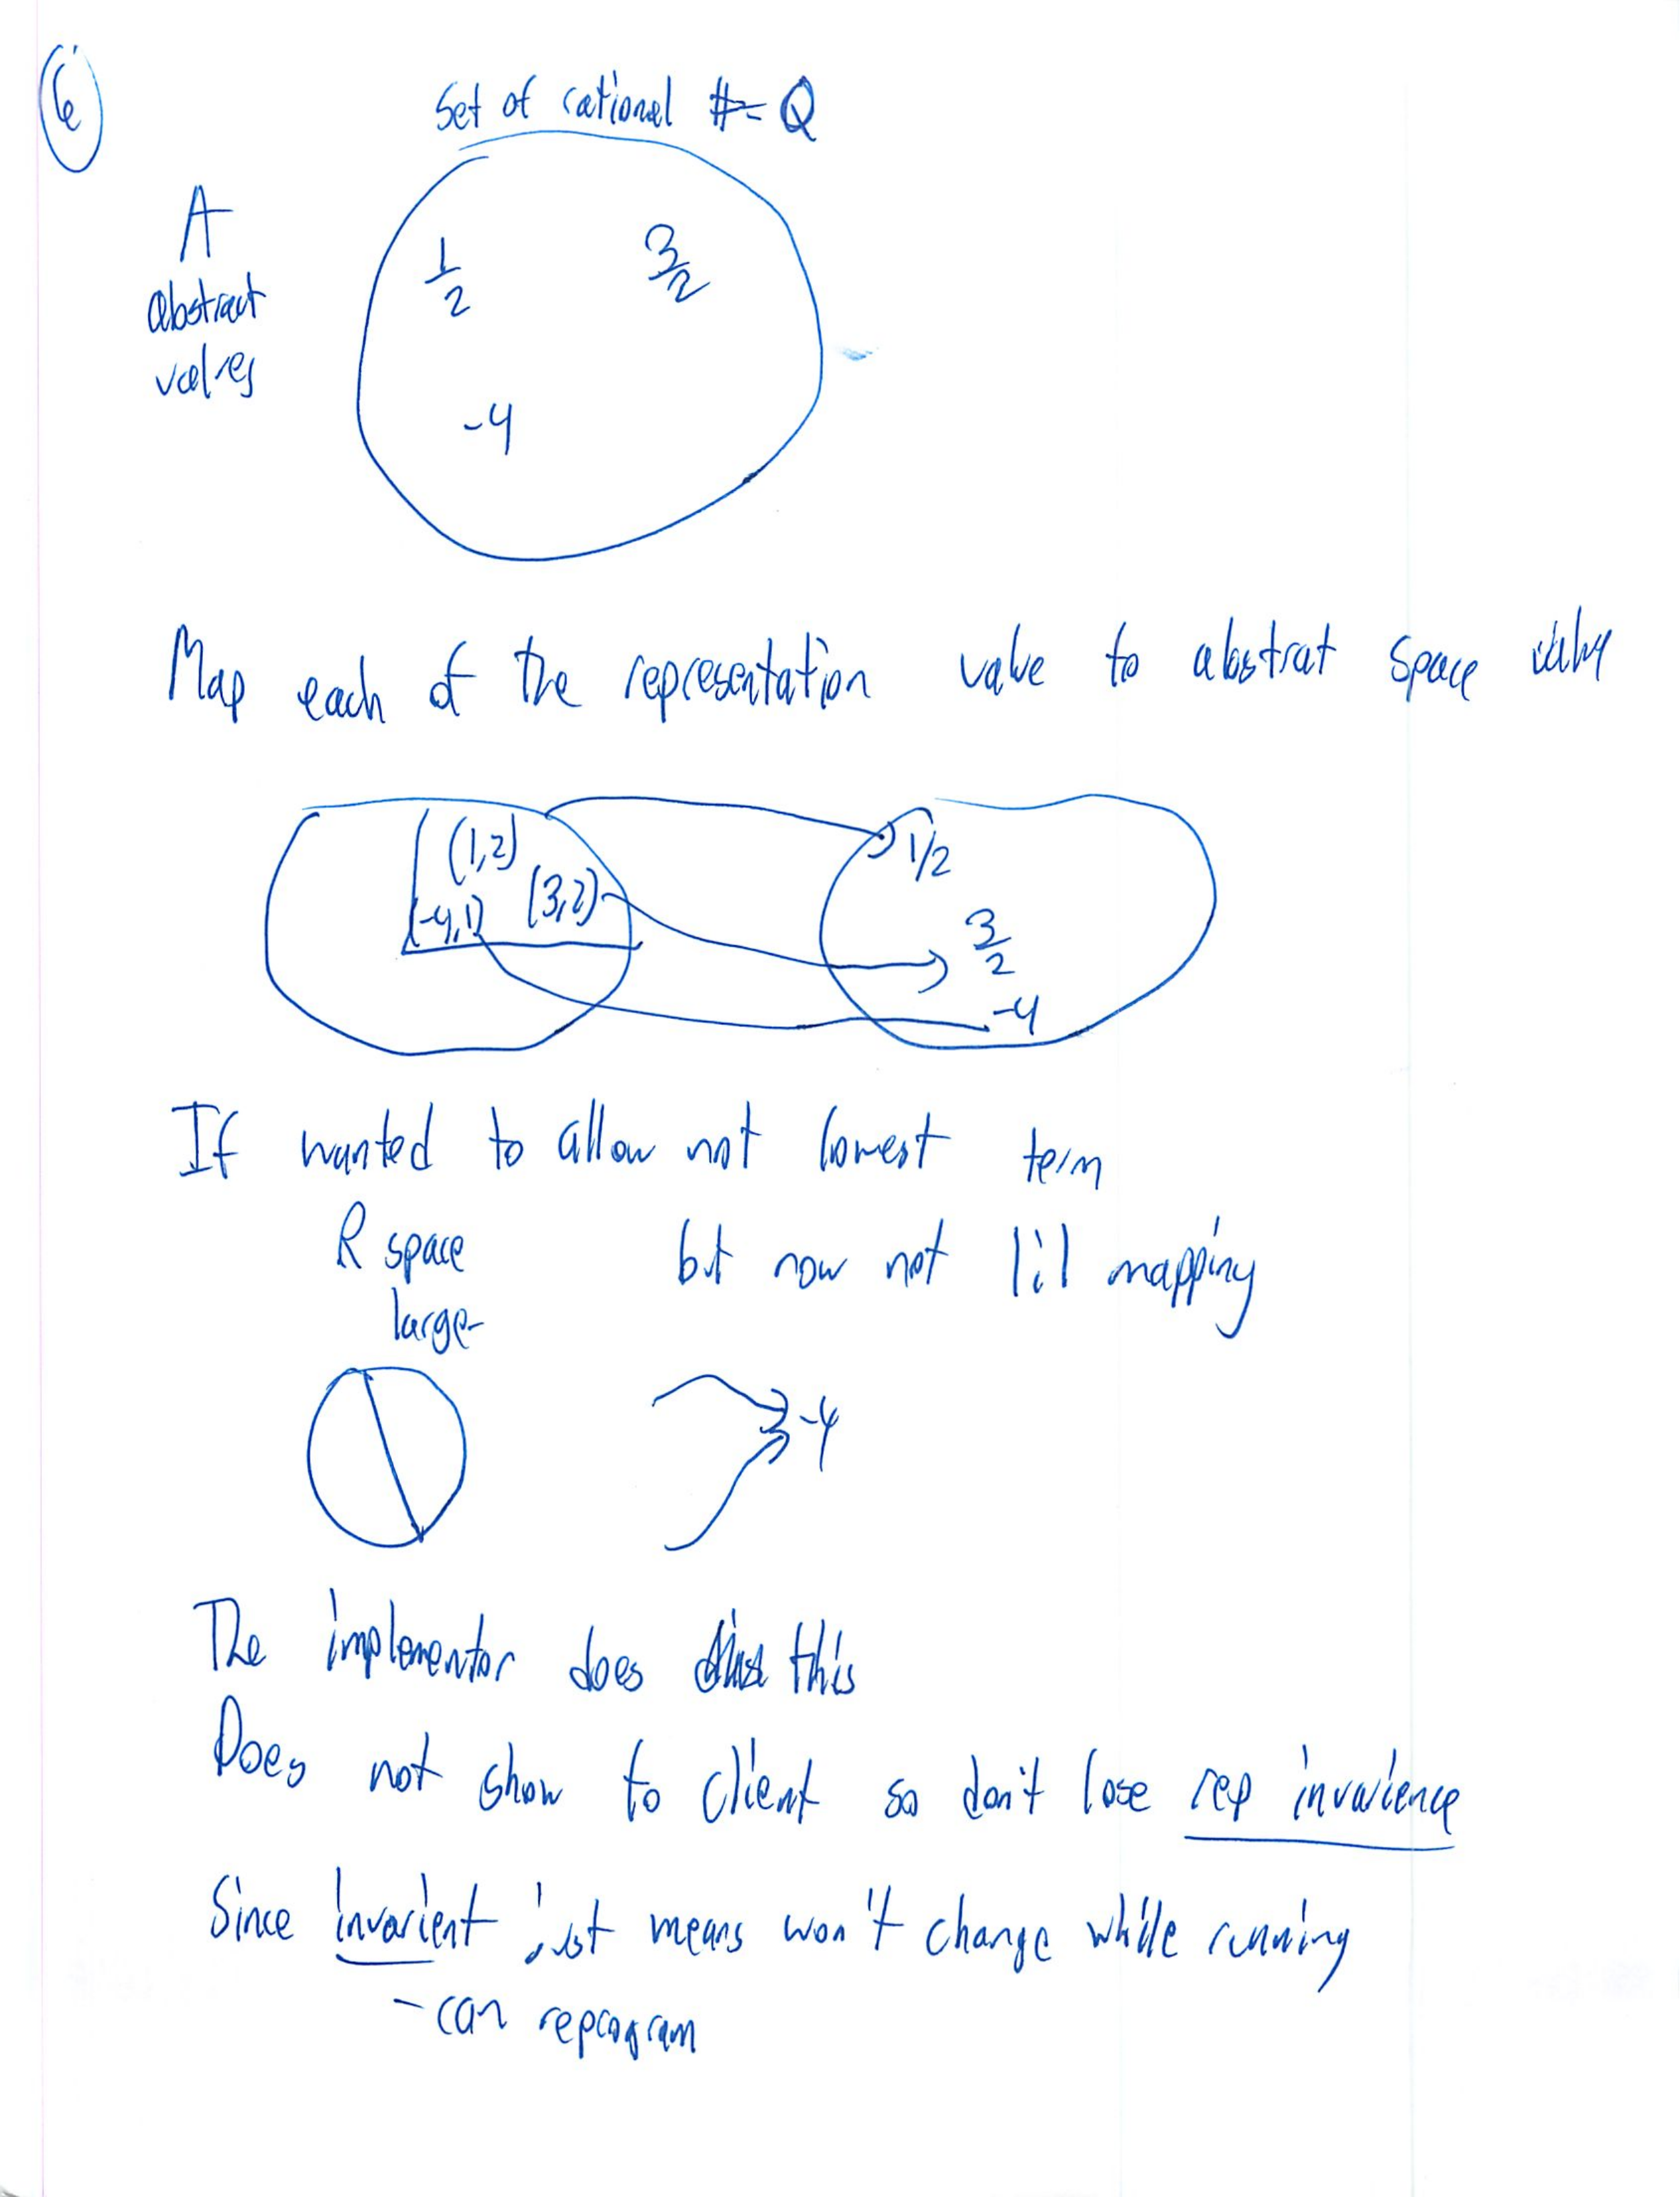 6
Set of rational #= Q
A
abstract
values
1/2
3/2
-4
Map each of the representation value to abstrat space
(1,2)
(3,2)
(-4,1)
1/2
3/2
-4
If wanted to allow not lowest term
R space
larger
but now not 1:1 mapping
-4
The implementor does this
Does not show to client so don't lose rep invarience
Since invarient just means won't change while running
- can reprogram